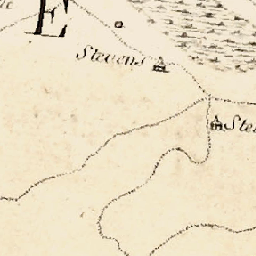 E
Stevens
Ste